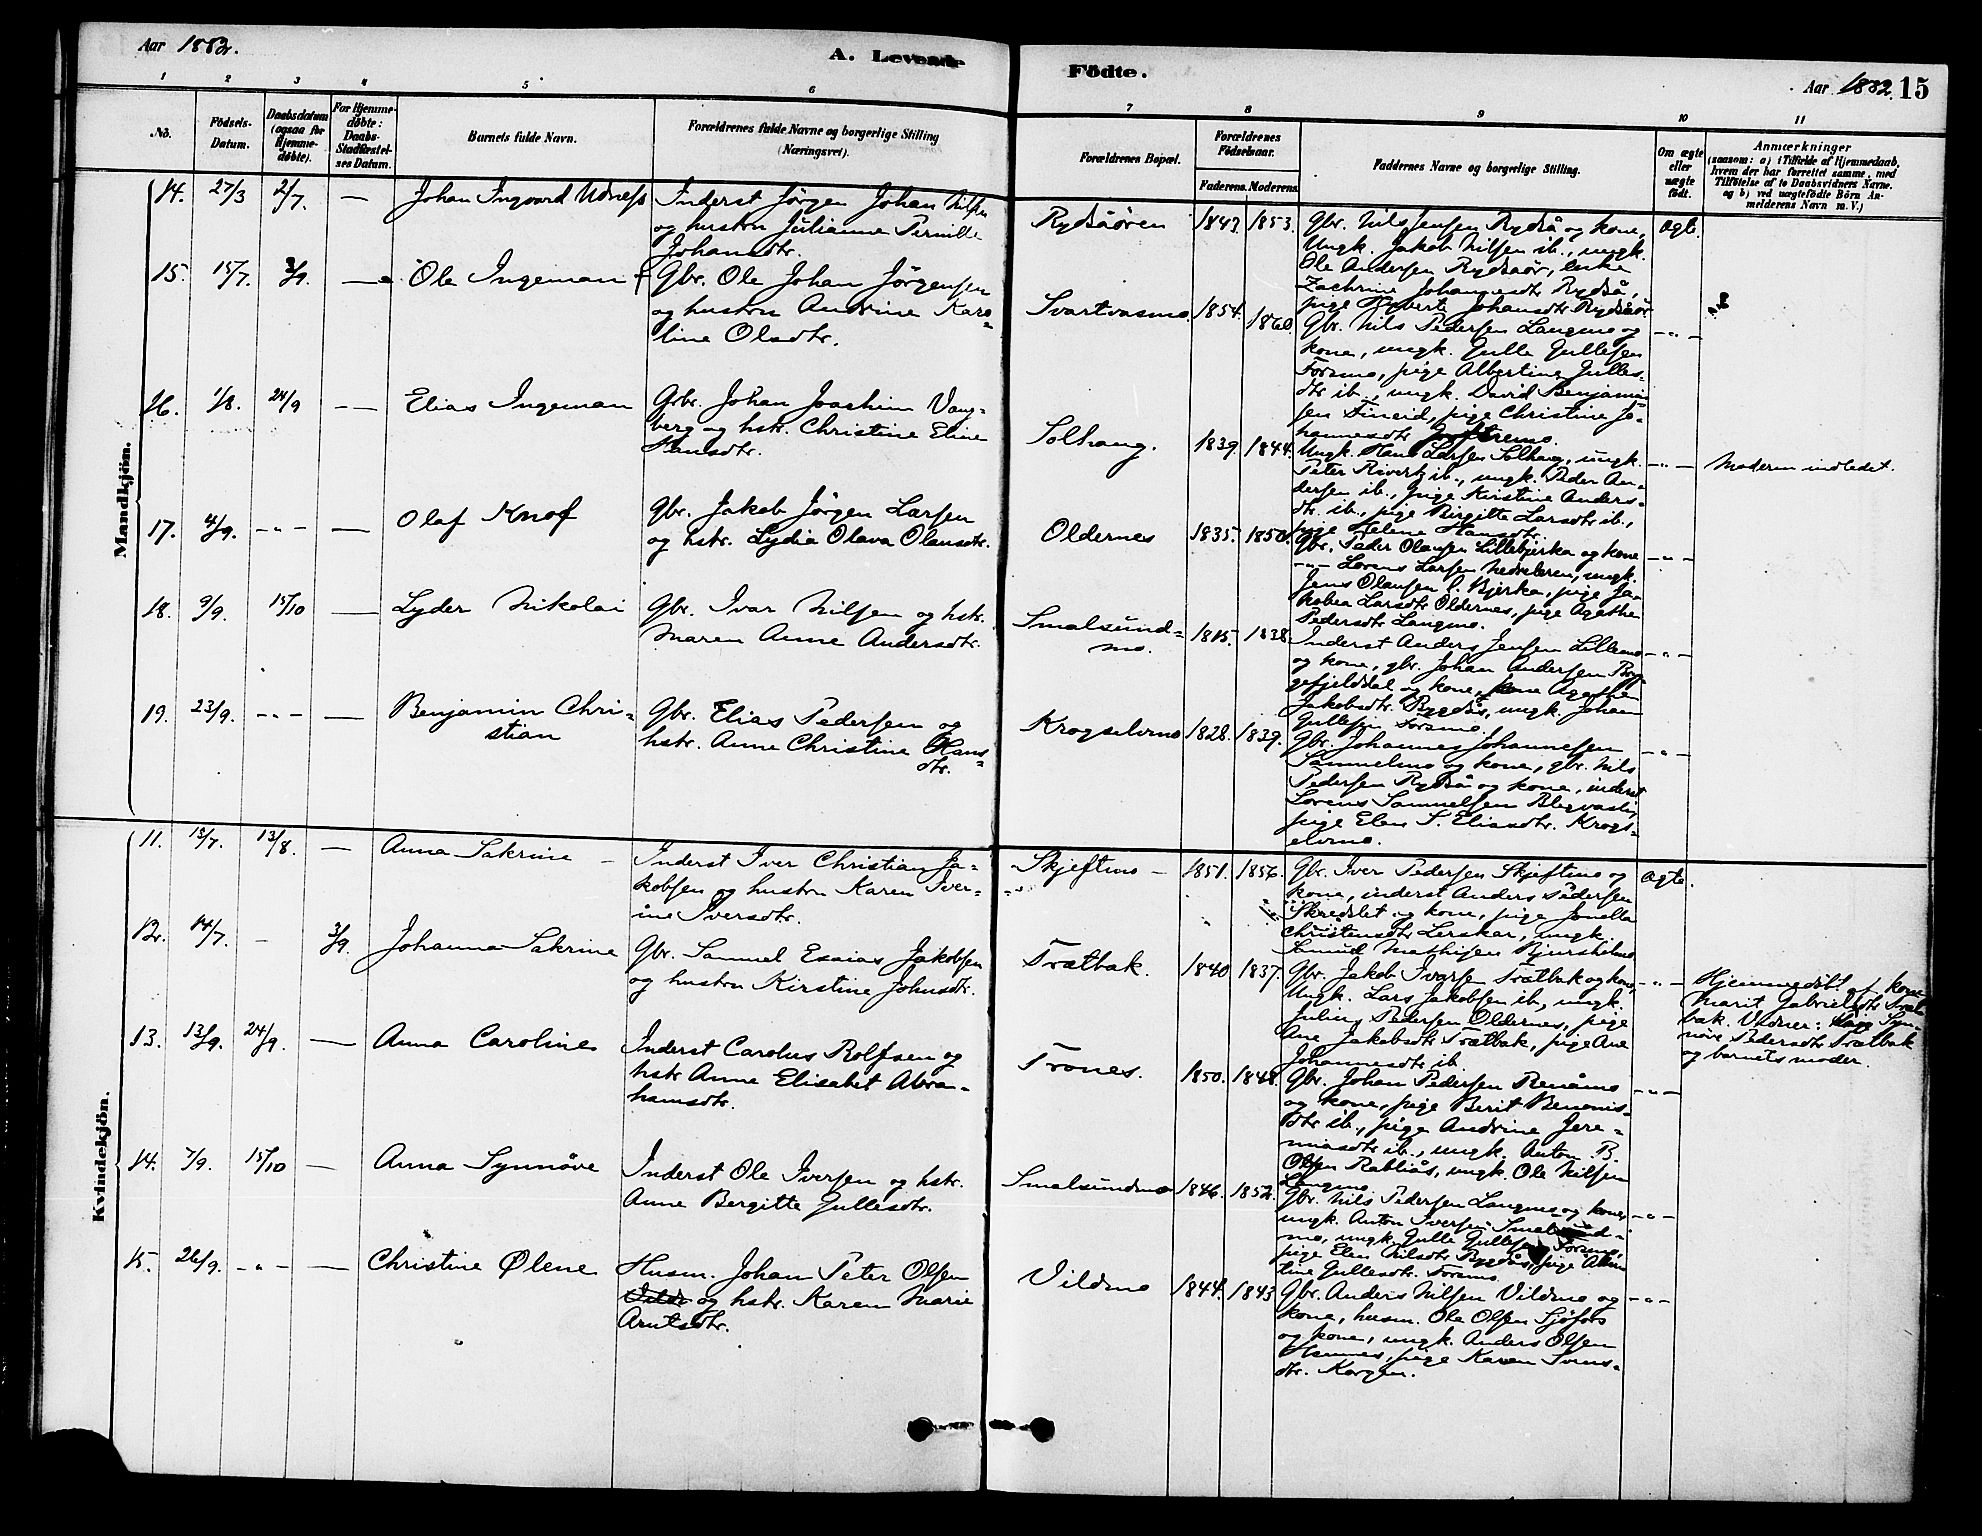 Aar 1882.
A. Levende
1 2 3 4 5 6
No.
Födsels-Datum.
Daabsdatum (ogsaa for Hjemme-døbte).
For Hjemme-døbte: Daabs-Stadfæstel-ses Datum.
Barnets fulde Navn.
Forældrenes fulde Navne og borgerlige Stilling
(Næringsvei).
Mandkjön.
14. 27/3 2/7. — Johan Ingvard Udnæss Inderst Jørgen Johan Nilsen
og hustru Julianna Pernille
Johansdtr.
15. 15/7. 3/9. — Ole Ingeman Gbr. Ole Johan Jörgensen
og hustru Andrine Karo-
line Olsdtr.
16. 1/8. 24/9 — Elias Ingeman Gbr. Johan Joachim Vang-
berg og hstr. Christine Eline
Hansdtr.
17. 4/9. -"- — Olaf Knof Gbr. Jakob Jörgen Larsen
og hstr. Lydia Olava Olausdtr.
18. 9/9. 15/10 — Lyder Nikolai Gbr. Ivar Nilsen og hstr.
Maren Anne Andersdtr.
19. 23/9. -"- — Benjamin Chri-
stian
Gbr. Elias Pedersen og
hstr. Anne Christine Hans-
dtr.
Kvindekjön.
11. 15/7. 13/8. — Anna Sakrine Inderst Iver Christian Ja-
kobsen og hustru Karen Iver-
ine Iversdtr.
12. 14/7. - 3/9. Johanna Sakrine Gbr. Samuel Esaias Jakobsen
og hustru Kirstine Johnsdtr.
13. 13/9. 24/9. — Anna Caroline Inderst Carolus Rolfsen og
hstr Anne Elisabet Abra-
hamsdtr.
14. 7/9. 15/10 — Anna Synnöve Inderst Ole Iversen og hstr.
Anne Bergitte Gullesdtr.
15. 26/9. -"- — Christine Ølene Husm. Johan Peter Olsen
og hstr. Karen Marie
Arntsdtr.
Födte.
Aar 1882. 15
7 8 9 10 11
Forældrenes Bopæl.
Forældrenes Födselsaar.
Faderens. Moderens.
Faddernes Navne og borgerlige Stilling.
Om ægte eller uægte födt.
Anmærkninger
(saasom: a) i Tilfælde af Hjemmedaab, hvem der har forrettet samme, med Tilföielse af to Daabsvidners Navne. og b) ved uægtefödte Börn Anmelderens Navn m. V.)
Rydsåören 1843. 1853. Gbr. Nils Jensen Rydså og kone, ægte.
Ungk. Jakob Nilsen ib., ungk.
Ole Andersen Rydsåör, enke
Zachrine Johannesdtr Rydså,
pige Johansdtr Rydsåör
Svartvasmo. 1854. 1860. Gbr. Nils Pedersen Langmo og -"-
kone, ungk. Gulle Gullesen
Forsmo, pige Albertine Gulles-
dtr ib., ungk. David Benjamin-
sen Fineid, pige Christine Jo-
hannesdtr
Solhaug. 1839. 1844. Ungk. Hans Larsen Solhaug, ungk. -"- Moderen indledet.
Peter ib., ungk. Peder An-
dersen ib., pige Kirstine Anders-
dtr. ib., pige Birgitte Larsdtr ib.,
pige Helene Hansdtr.
Oldernes 1835. 1850. Gbr. Peder Olausen Lillebjerka og kone -"-
-"- Lorens Larsen Nedreleren, ungk.
Jens Olausen L. Bjerka, pige Ja-
kobea Larsdtr Oldernes, pige Agathe
Pedersdtr Langmo.
Smalsund-
mo.
1815. 1838. Inderst Anders Jensen Lillemo -"-
og kone, gbr. Johan Andersen Bör-
gefjelddal og kone, Agathe
Jakobsdtr. Rygdås, ungk. Johan
Gullesen Forsmo.
Krogselvmo 1828. 1839. Gbr. Johannes Johannesen -"-
Sammelmo og kone, gbr. Nils
Pedersen Rydså og kone, inderst
Lorens Samuelsen
pige Elen S. Eliasdtr. Krogs-
elvmo.
Skjeftmo — 1851. 1856. Gbr. Iver Pedersen Skjeftmo og ægte.
kone, inderst Anders Pedersen
Skredslet og kone, pige Jonella
Christensdtr Lerskar, ungk.
Mathisen
Trætbak. 1840 1837. Gbr. Jakob Ivarsen Trætbak og kone, -"- Hjemmedöbt af kone
Ungk. Lars Jakobsen ib., ungk. Marit Gabrielsdtr Træt-
Julius Pedersen Oldernes, pige bak. Vidner: Syn-
Ane Jakobsdtr Trætbak, pige Ane növe Pedersdtr Trætbak
Johannesdtr ib. og barnets moder.
Trones. 1850. 1848. Gbr. Johan Pedersen Renåmo -"-
og kone, pige Berit Benonis-
dtr ib., pige Andrine Jere-
miasdtr ib., ungk. Anton B.
Olsen Rabliås, ungk. Ole Nilsen
Langmo.
Smalsundmo 1846. 1852. Gbr. Nils Pedersen Langmo og kone, -"-
ungk. Anton Iversen Smalsund-
mo, ungk. Gulle Gullesen Forsmo,
pige Elen Nilsdtr Rygdås, pige Alber-
tine Gullesdtr. Forsmo.
Vildmo 1844. 1843 Gbr. Anders Nilsen Vildmo og -"-
kone, husm. Ole Olsen Sjöfors
og kone, ungk. Anders Olsen
Hemnes, pige Karen Svens-
dtr. Korgen.